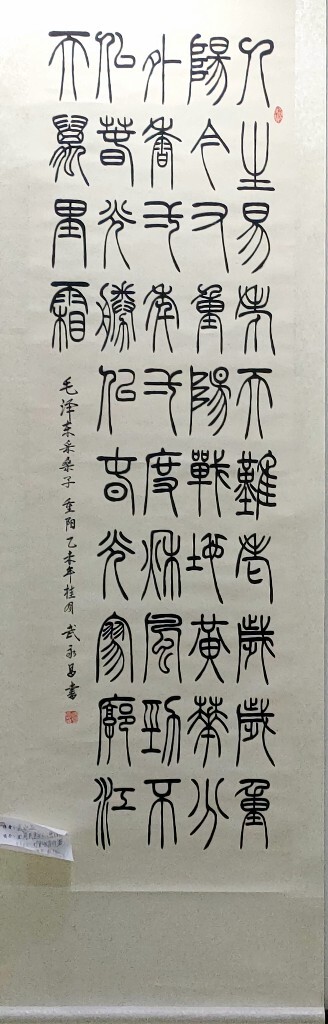 人生易老天難老歲歲重
陽今又重陽戰地黃華分
外香弌年弌度秋風勁不
似春光勝似春光寥廓江
天萬里霜
毛泽东采桑子 重阳 乙未年桂月 武永昌書